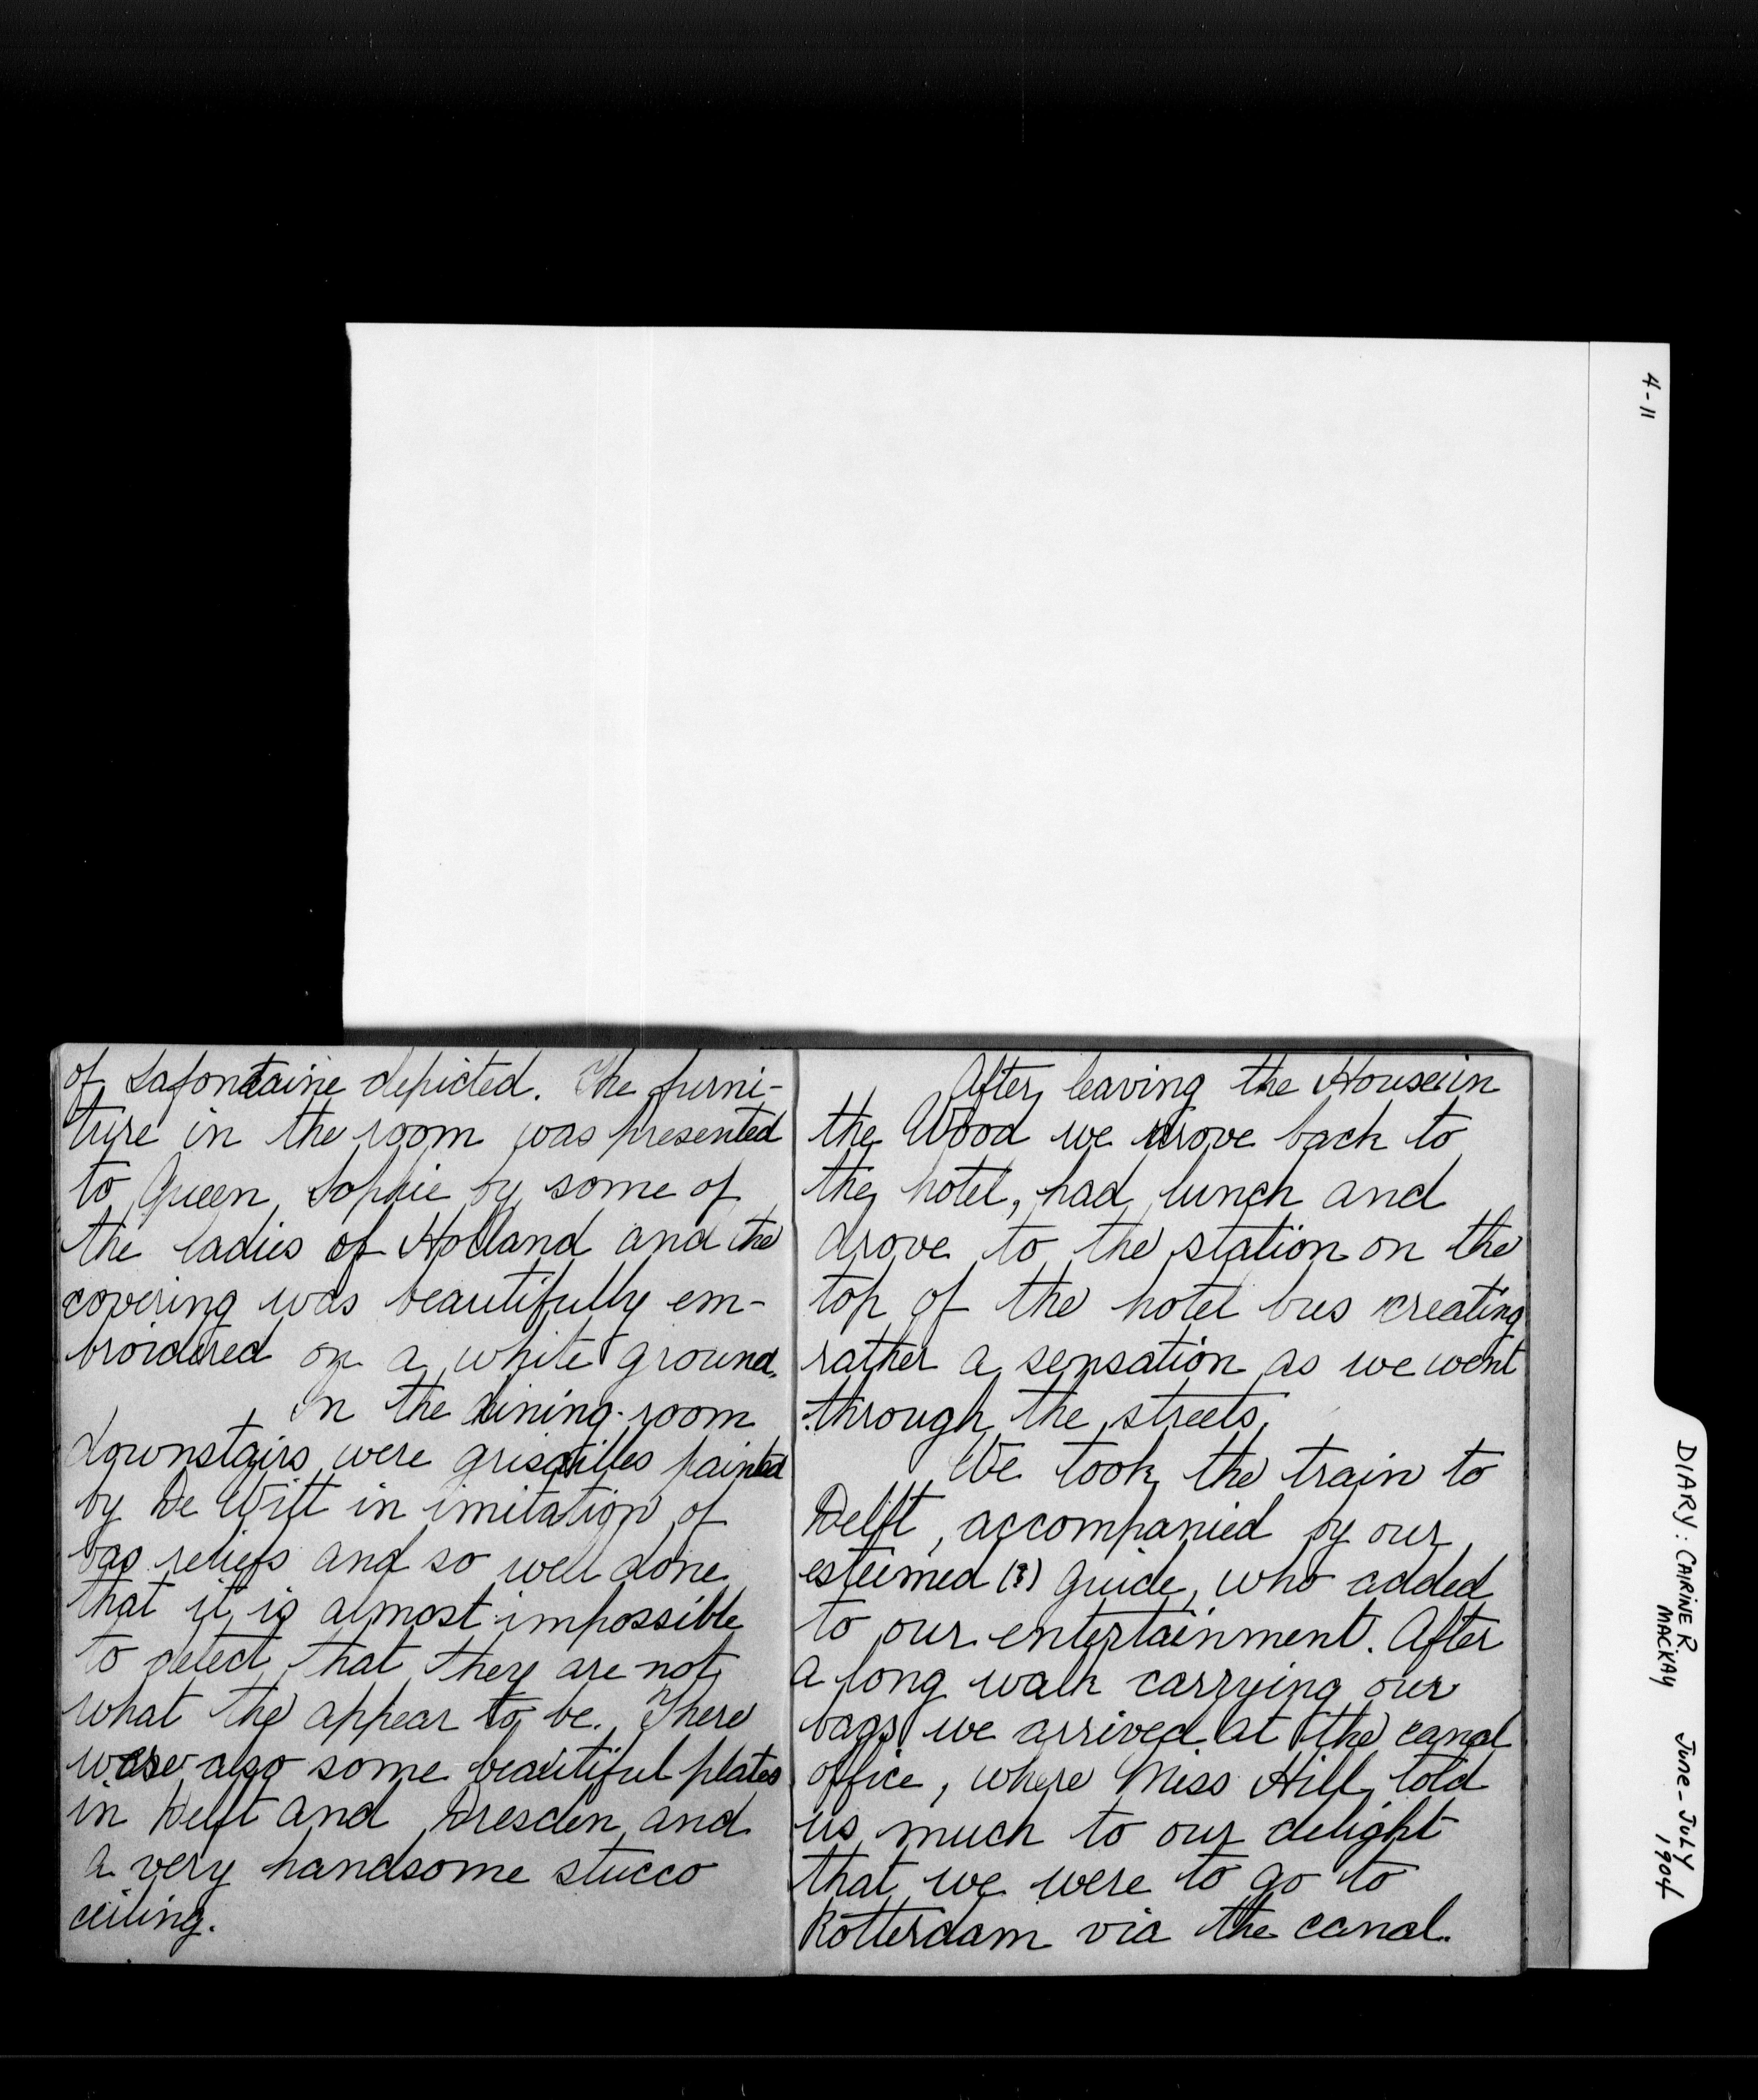 of Lafontaine depicted. The furni-
ture in the room was presented
to Queen Sophie by some of
the ladies of Holland and the
covering was beautifully em-
broidered on a white ground.
In the dining-room
downstairs were grisailles painted
by De Witt in imitation of
bas reliefs and so well done
that it is almost impossible
to detect that they are not
what the appear to be. There
were also some beautiful plates
in Delft and Dresden and
a very handsome stucco
ceiling.
After leaving the House in
the Wood we drove back to
the hotel, had lunch and
drove to the station on the
top of the hotel bus creating
rather a sensation as we went
through the streets.
We took the train to
Delft, accompanied by our
esteemed (?) guide, who added
to our entertainment. After
a long walk carrying our
bags we arrived at the canal
office, where Miss Hill told
us much to our delight
that we were to go to
Rotterdam via the canal.
4-11
DIARY: CAIRINE R. MACKAY
June - July 1904